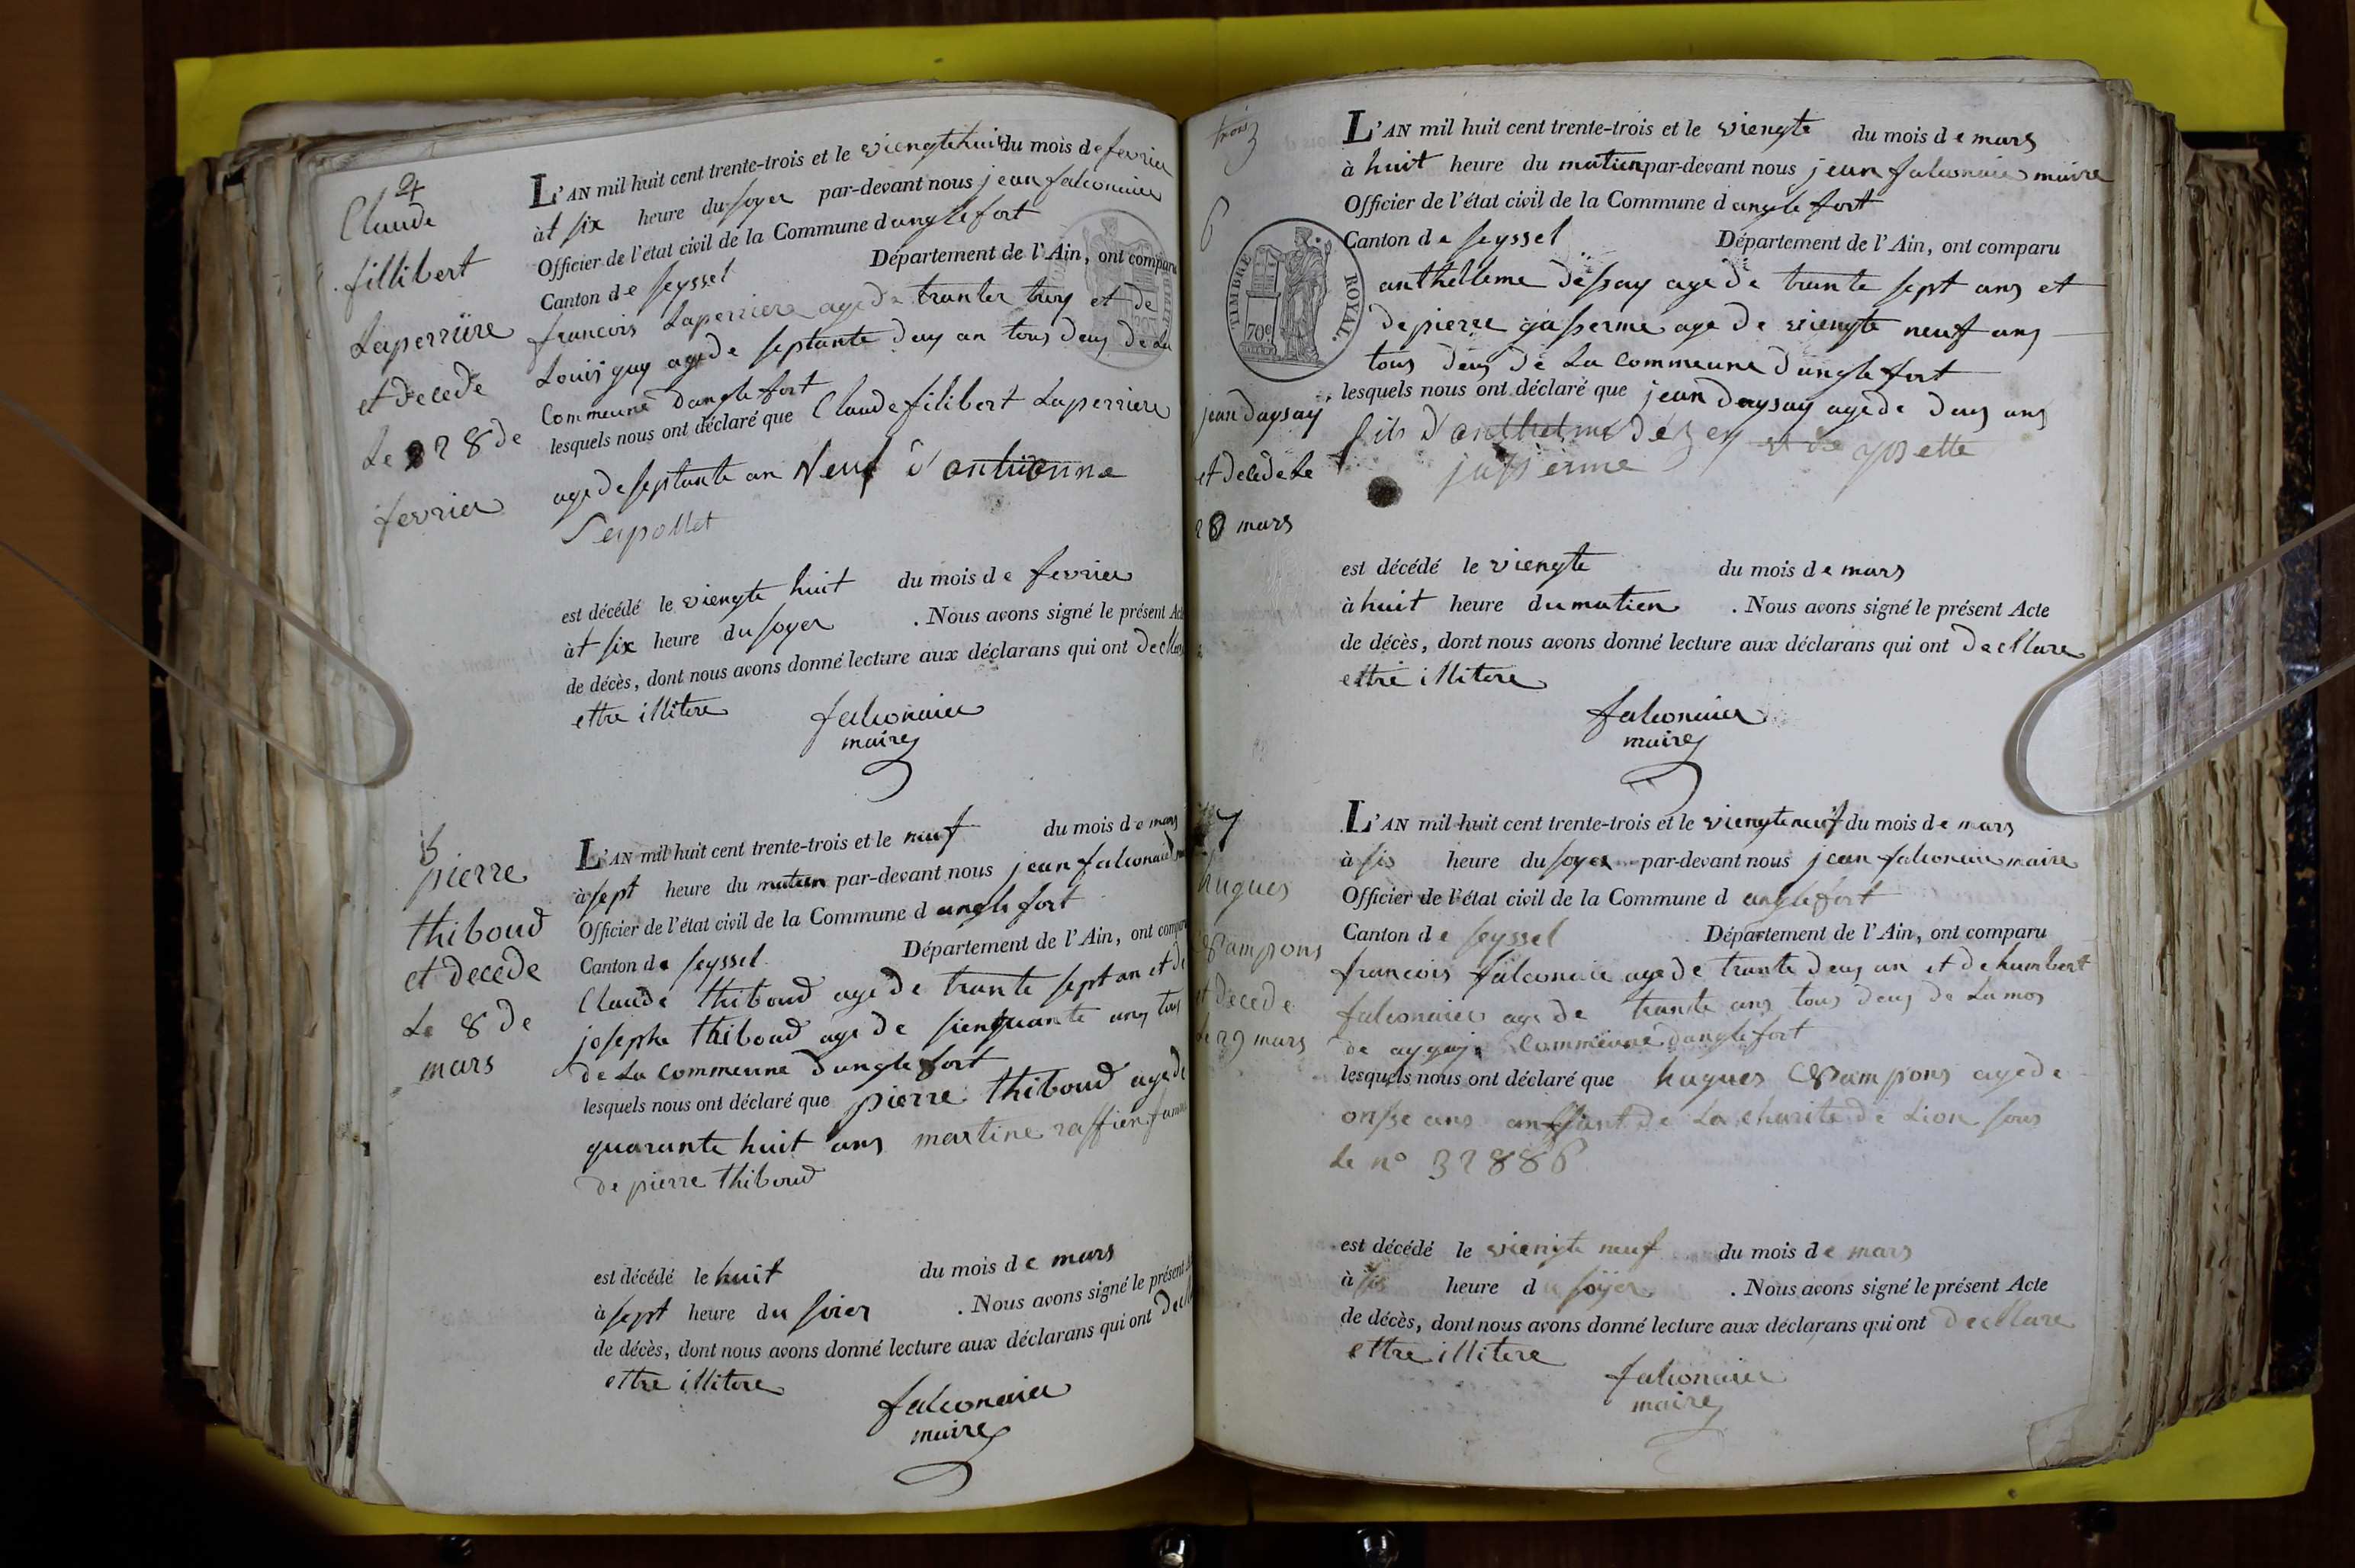 4
Claude
fillibert
Laperriire
et decede
Le 28 de
fevrier
L'AN mil huit cent trente-trois et le viengtehuit du mois de fevrier
àt six heure du soyer par-devant nous jean falconnier
Officier de l'état civil de la Commune d anglefort
Canton de seyssel Département de l'Ain, ont comparu
francois Laperriere age de trante troy et de
Louis guy age de septante deuy an tous deuy de La
Commeune d'anglefort
lesquels nous ont déclaré que Claude filibert Laperriere
age de septante an Veuf d'antienne
Serpollet
est décédé le viengte huit du mois de fevrier
àt six heure du soyer . Nous avons signé le présent Acte
de décès, dont nous avons donné lecture aux déclarans qui ont decllare
ettre illitere
falconnier
maire
5
pierre
thiboud
et decede
Le 8 de
mars
L'AN mil huit cent trente-trois et le neuf du mois de mars
à sept heure du matien par-devant nous jean falconnier
Officier de l'état civil de la Commune d anglefort
Canton de seyssel Département de l'Ain, ont comparu
Claude thiboud age de trante sept an et de
josephe thiboud age de sienquante any tous
de La commeune d'anglefort
lesquels nous ont déclaré que pierre thiboud age de
quarante huit any martine raffien famme
de pierre thiboud
est décédé le huit du mois de mars
à sept heure du soier . Nous avons signé le présent
de décès, dont nous avons donné lecture aux déclarans qui ont
ettre illitere
falconnier
maire
trois
3
6
TIMBRE ROYAL.
70c
jean daysay
et decede Le
20 mars
L'AN mil huit cent trente-trois et le viengte du mois de mars
à huit heure du matien par-devant nous jean falconnier maire
Officier de l'état civil de la Commune d anglefort
Canton de seyssel Département de l'Ain, ont comparu
anthelleme dessay age de trante sept any et
de pierre jasserme age de viengte neuf any
tous deuy de La commeune d'anglefort
lesquels nous ont déclaré que jean daysay age de deuy any
fils d'anthelme et de
jasserme
est décédé le viengte du mois de mars
à huit heure du matien . Nous avons signé le présent Acte
de décès, dont nous avons donné lecture aux déclarans qui ont decllare
ettre illitere
falconnier
maire
7
hugues
Campons
et decede
Le 29 mars
L'AN mil huit cent trente-trois et le viengteneuf du mois de mars
à sis heure du soyer par-devant nous jean falconnier maire
Officier de l'état civil de la Commune d anglefort
Canton de seyssel Département de l'Ain, ont comparu
francois falconnier age de trante deuy an et de humbert
falconnier age de trante any tous deuy de Lamos
de Commeune d'anglefort
lesquels nous ont déclaré que hugues Campons age de
onsse ans anffant de La charite de Lion sous
Le n° 32886
est décédé le viengte neuf du mois de mars
à sis heure du soyer . Nous avons signé le présent Acte
de décès, dont nous avons donné lecture aux déclarans qui ont decllare
ettre illitere
falconnier
maire